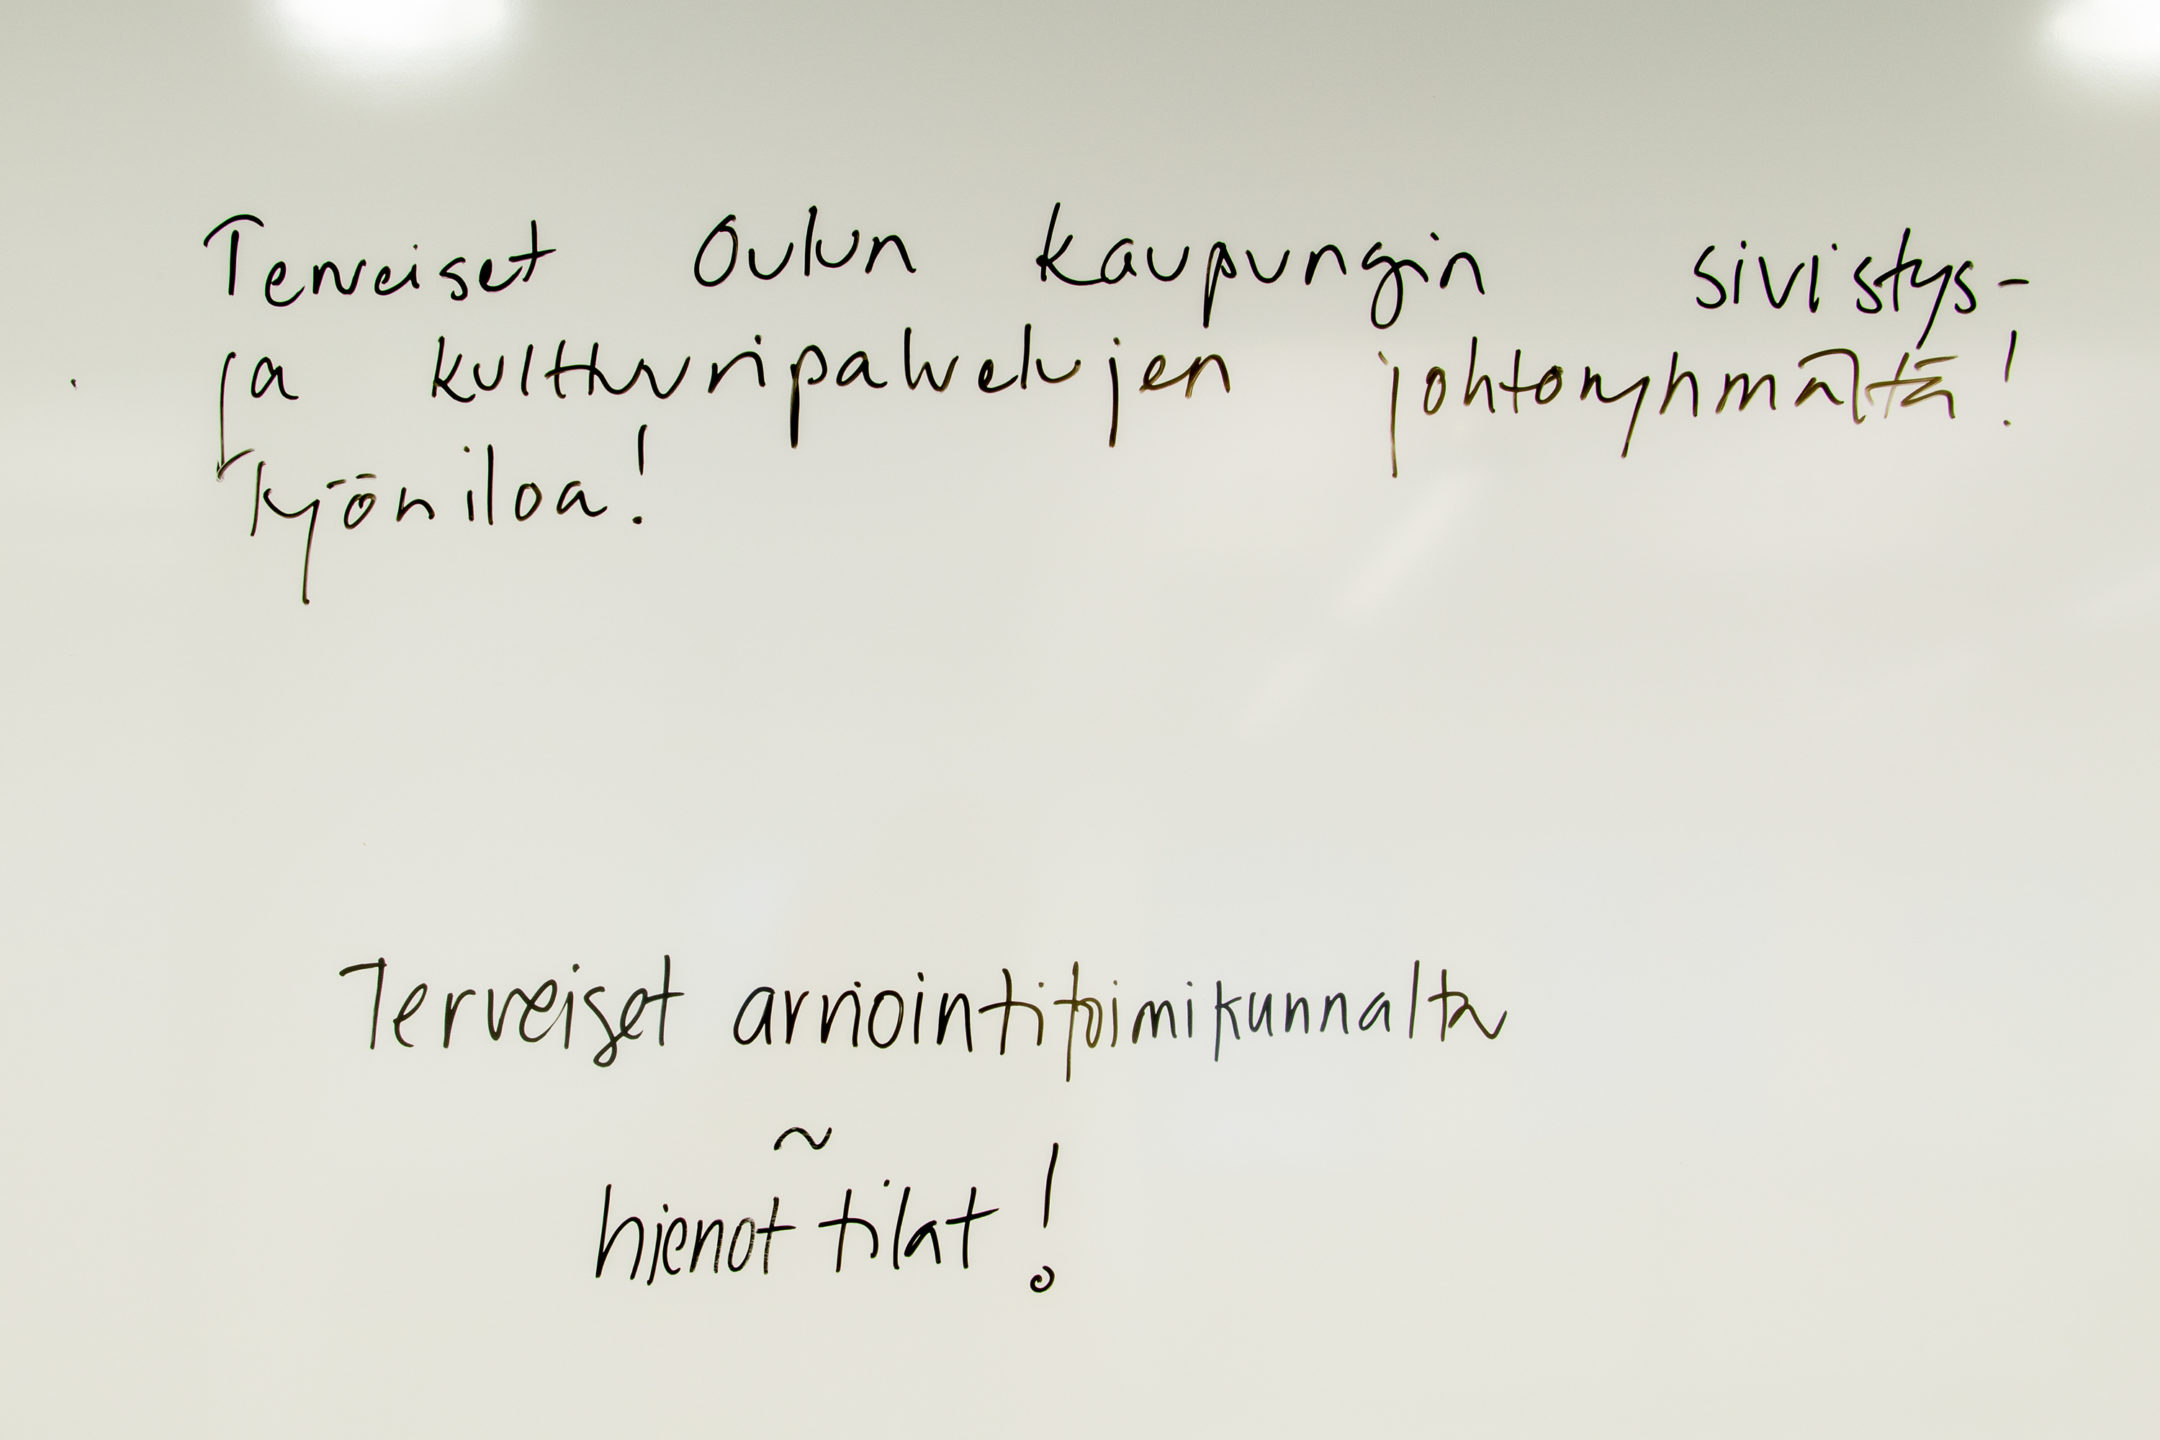 Terveiset Oulun kaupungin sivistys-
ja kulttuuripalvelujen johtoryhmältä!
Työniloa!
Terveiset arviointitoimikunnalta
~
hienot tilat!